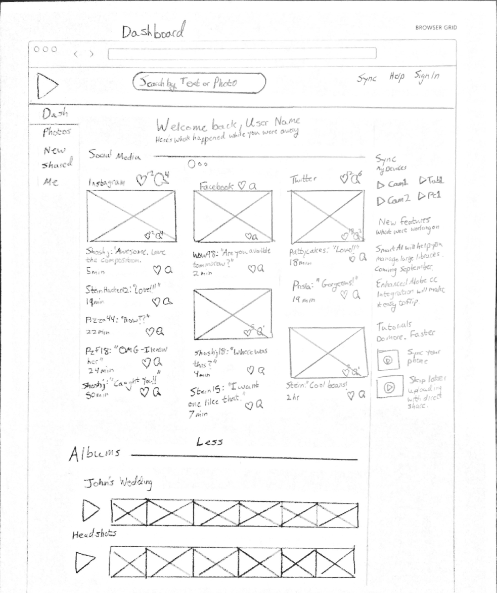 Dashboard
BROWSER GRID
Search by Text or Photo
Sync Help Sign In
Dash
Photos
New
Shared
Me
Welcome back, User Name
Here's what happened while you were away
Social Media
Instagram
Facebook
Twitter
"Awesome. Love
the composition.
5 min
"Love!!!"
19 min
22 min
PzF18: "OMG-I know
her"
24 min
"Caught You!!
50 min
"Are you available
tomorrow?"
2 min
this?"
4 min
Stein15: "I want
one like that."
7 min
Pattycakes: "Love!"
18 min
Pasta: "Gorgeous!"
19 min
Stein: "Cool beans!
2 hr
Sync
My Devices
Cam1
Tab1
Cam2
New features
What we're working on
Smart AI will help you
manage large libraries.
Coming September
Enhanced Adobe CC
Integration will make
Tutorials
Do more. Faster
Sync Your
phone
Skip
uploading
with direct
share.
Less
Albums
John's Wedding
Headshots